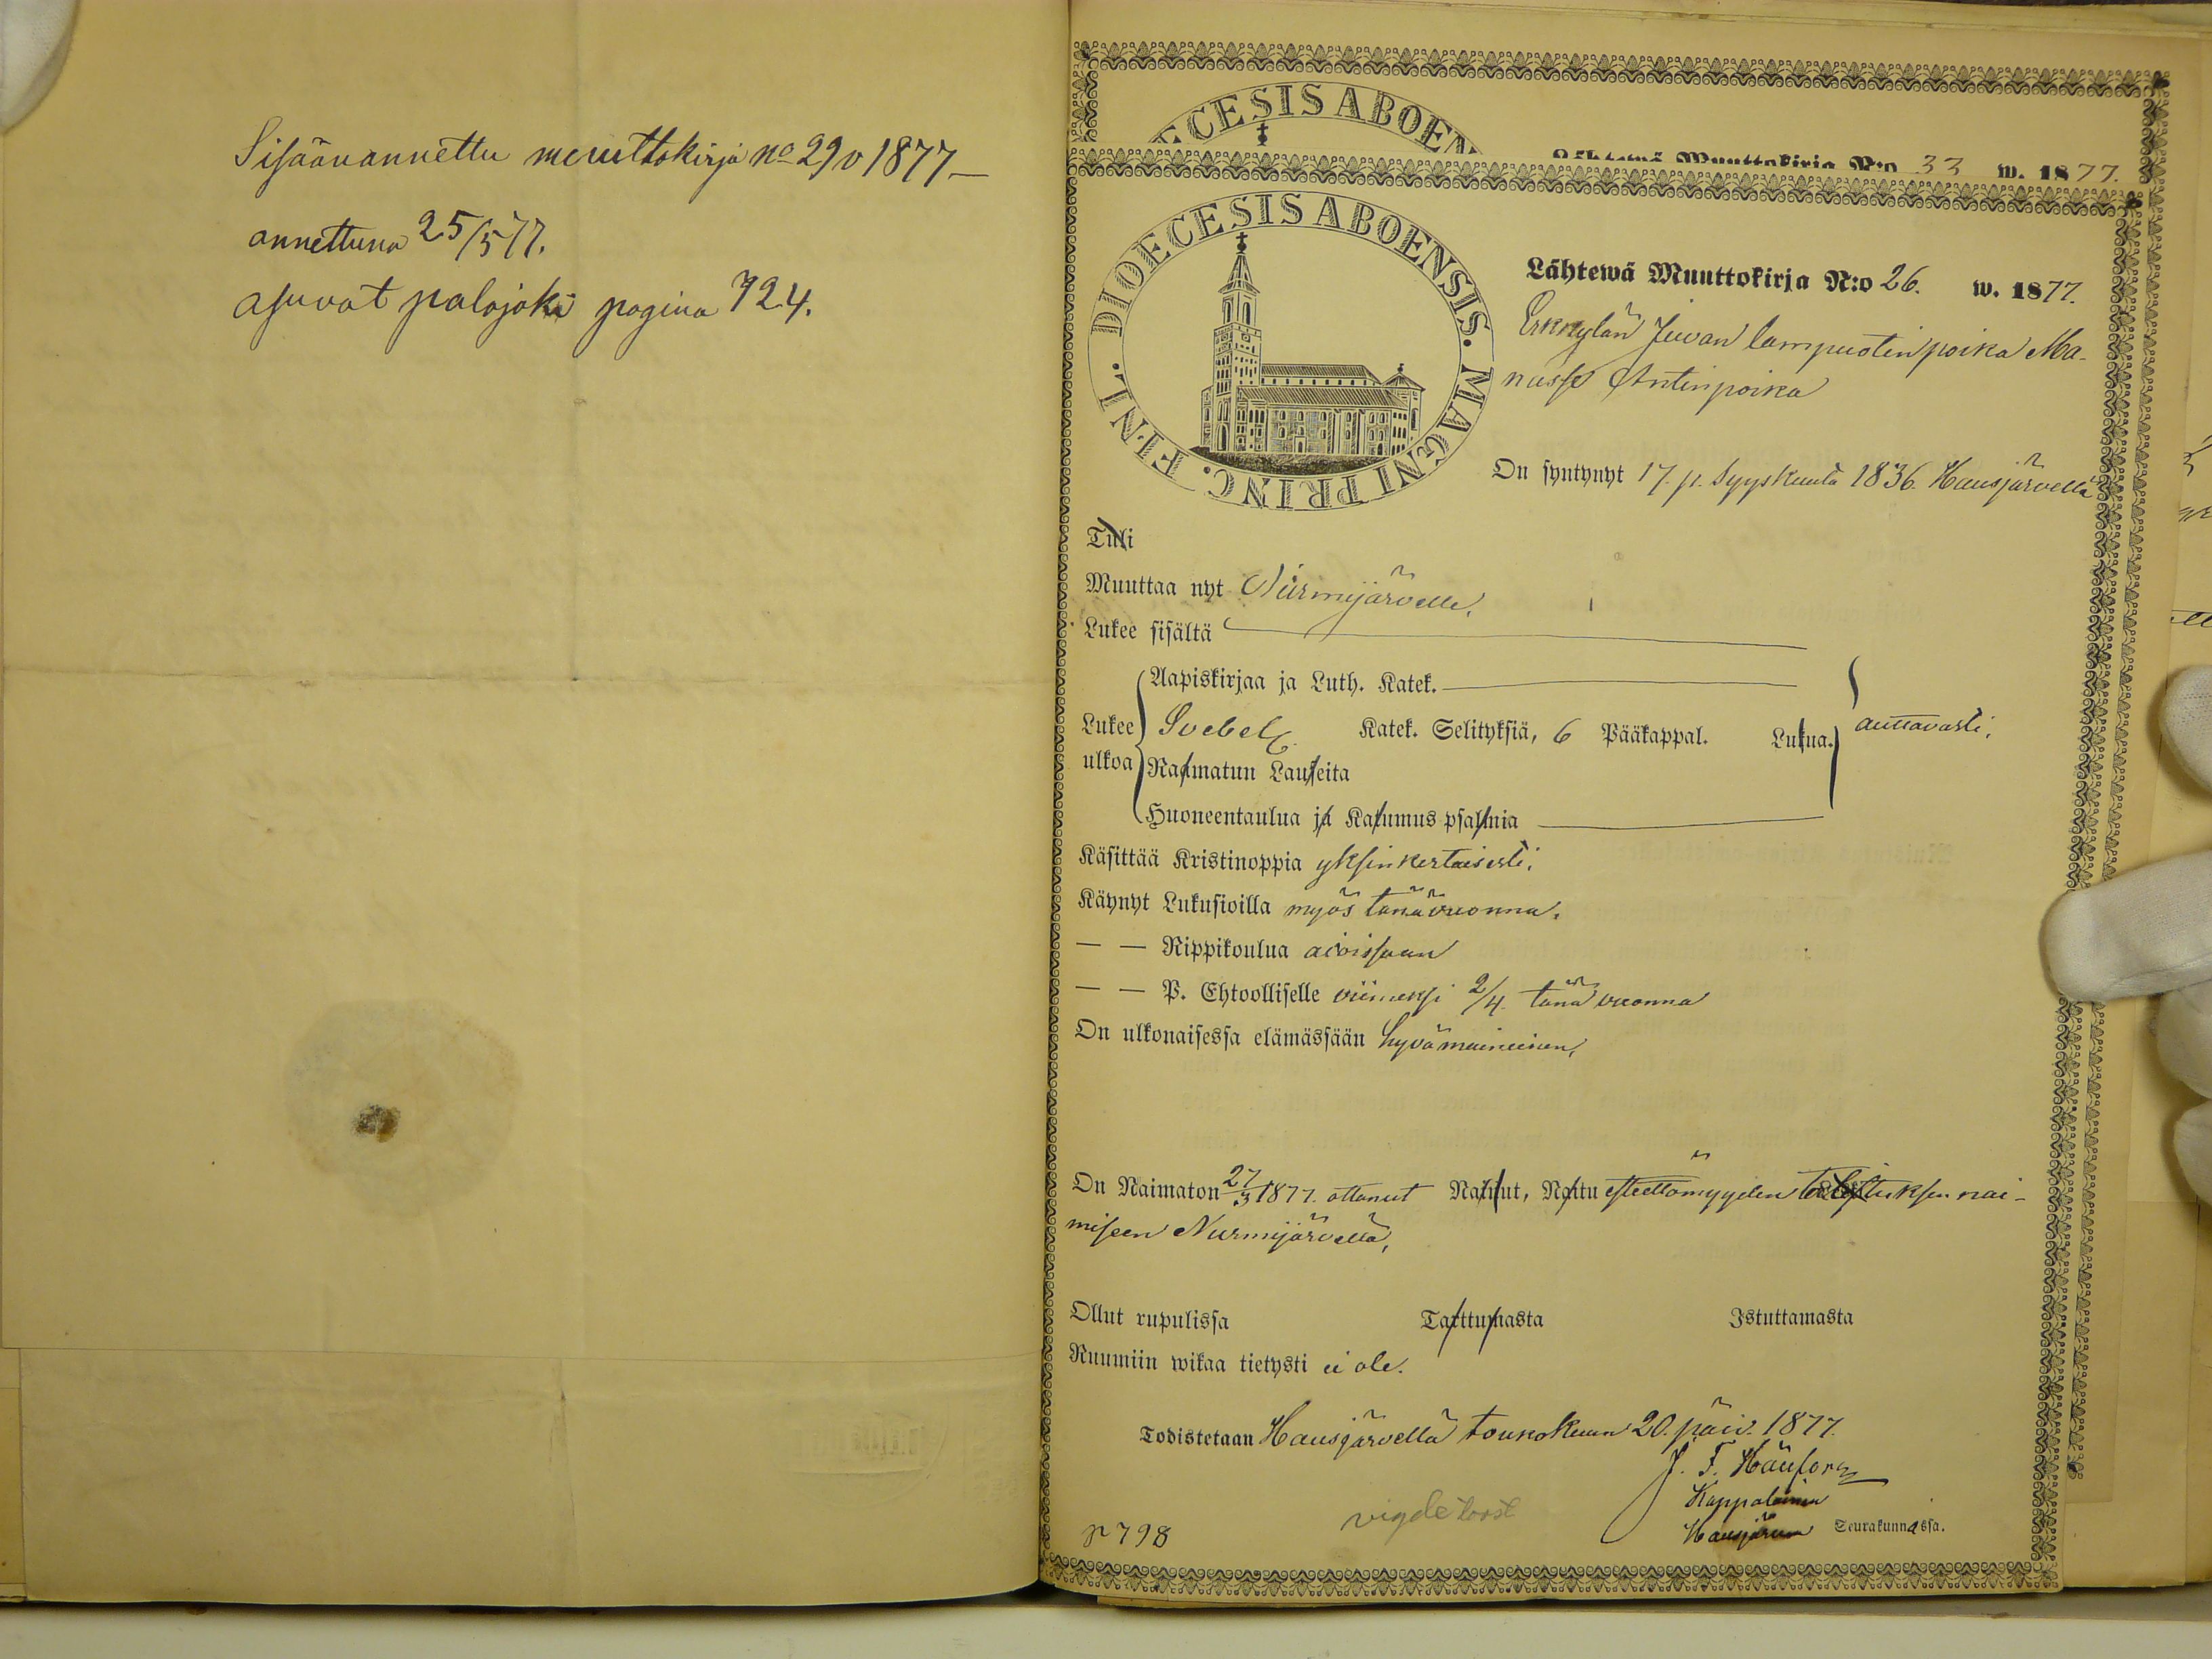 Sisäänannettu muuttokirja no 29 v 1877 –
annettuna 25/5 77.
asuvat palojoki pagina 724.
ECESIS ABOEN
Lähtewä Muuttokirja N:o 33 w. 1877.
DIOECESIS ABOENSIS. MAGNI PRINC. FINL.
Lähtewä Muuttokirja N:o 26. w. 1877.
Erkkylän Juvan lampuotin poika Ma-
nasse Antinpoika
On syntynyt 17. p. Syyskuuta 1836. Hausjärvellä
Tuli
Muuttaa nyt Nurmijärvelle.
Lukee sisältä
Aapiskirjaa ja Luth. Katek.
Lukee ulkoa Svebel. Katek. Selityksiä, 6 Pääkappal. Lukua. auttavasti.
Raamatun Lauseita
Huoneentaulua ja Katumus psalmia
Käsittää Kristinoppia yksinkertaisesti.
Käynyt Lukusioilla myös tänävuonna.
— — Rippikoulua aivissaan
— — P. Ehtoolliselle viimeksi 2/4. tänä vuonna
On ulkonaisessa elämässään hyvämaineinen.
On Naimaton 27/3 1877. ottanut Nainut, Naitu esteettömyyden todistuksen nai-
miseen Nurmijärvellä.
Ollut rupulissa Tarttumasta Istuttamasta
Ruumiin wikaa tietysti ei ole.
Todistetaan Hausjärvellä toukokuun 20. päiv. 1877.
J. F.
Kappalainen
p 798 vigde
Hausjärven Seurakunnassa.